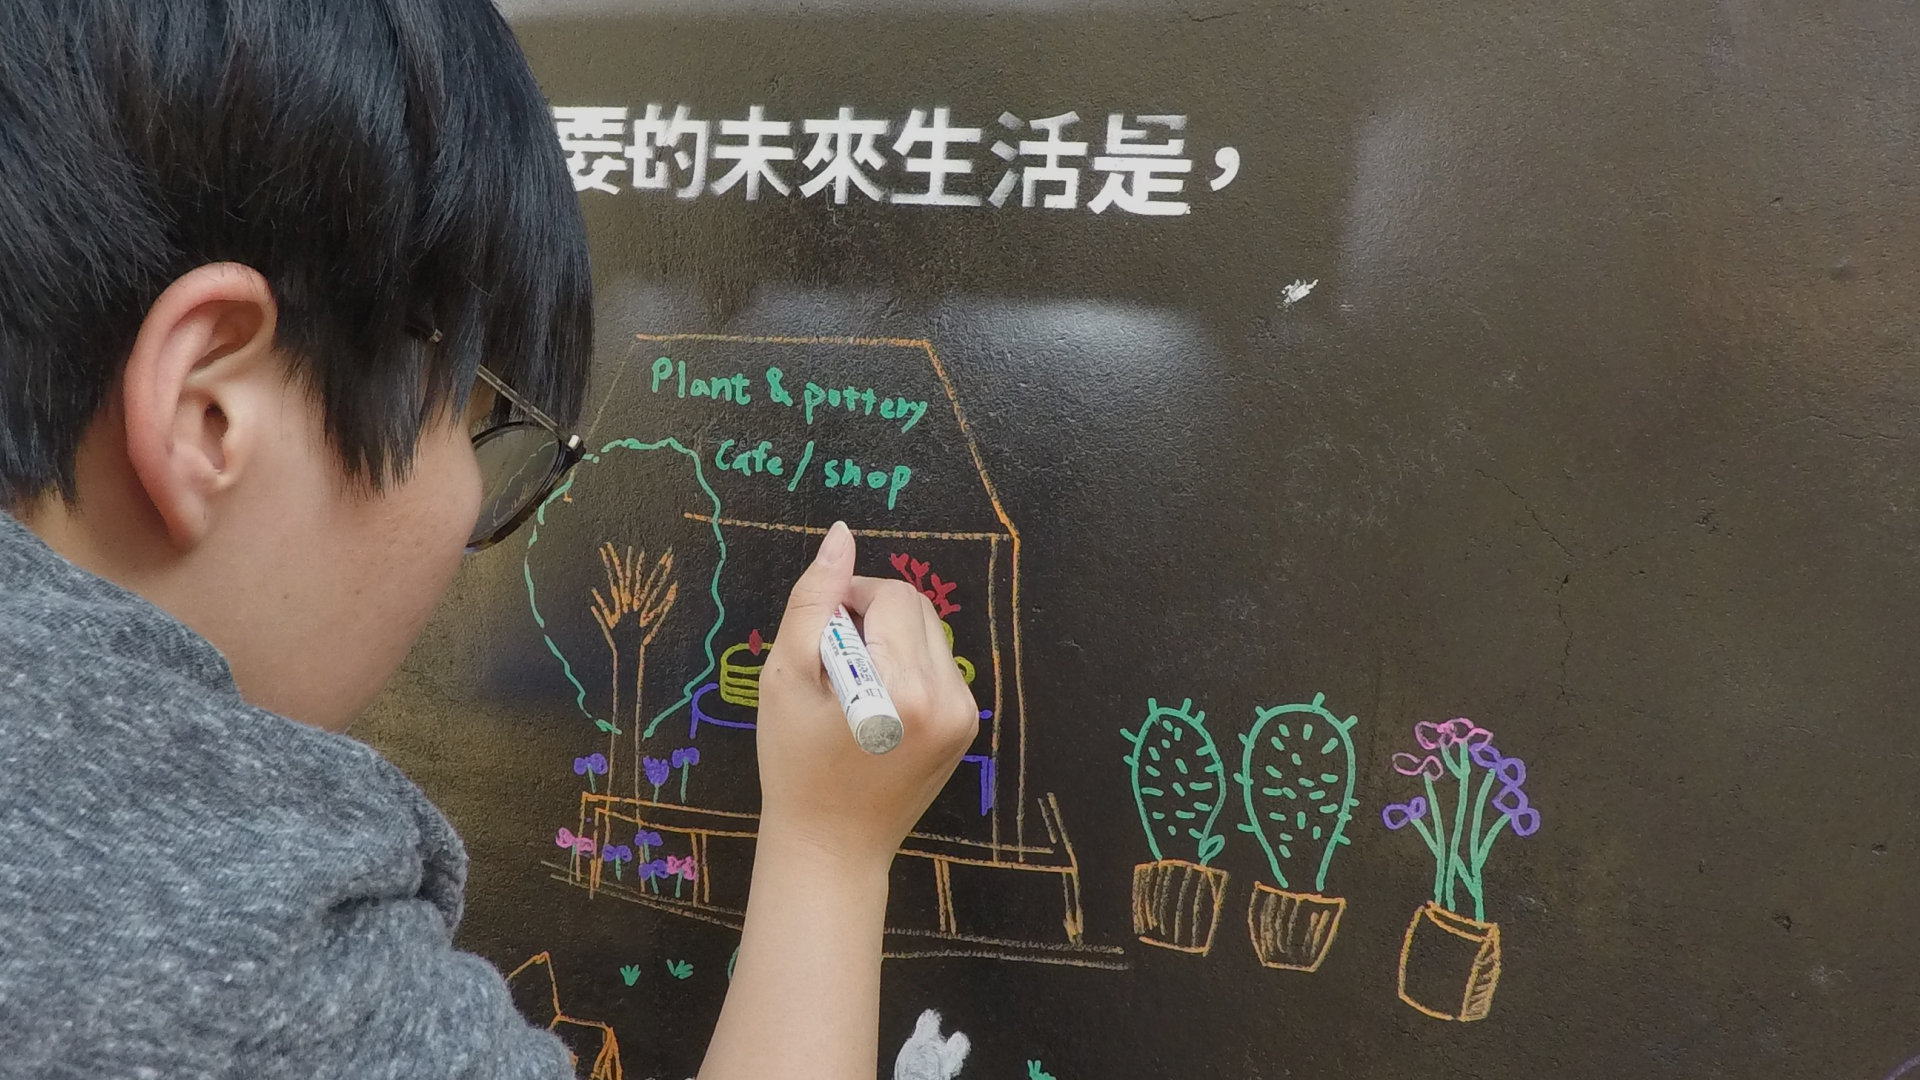 要的未來生活是，
Plant & pottery
Cafe / shop